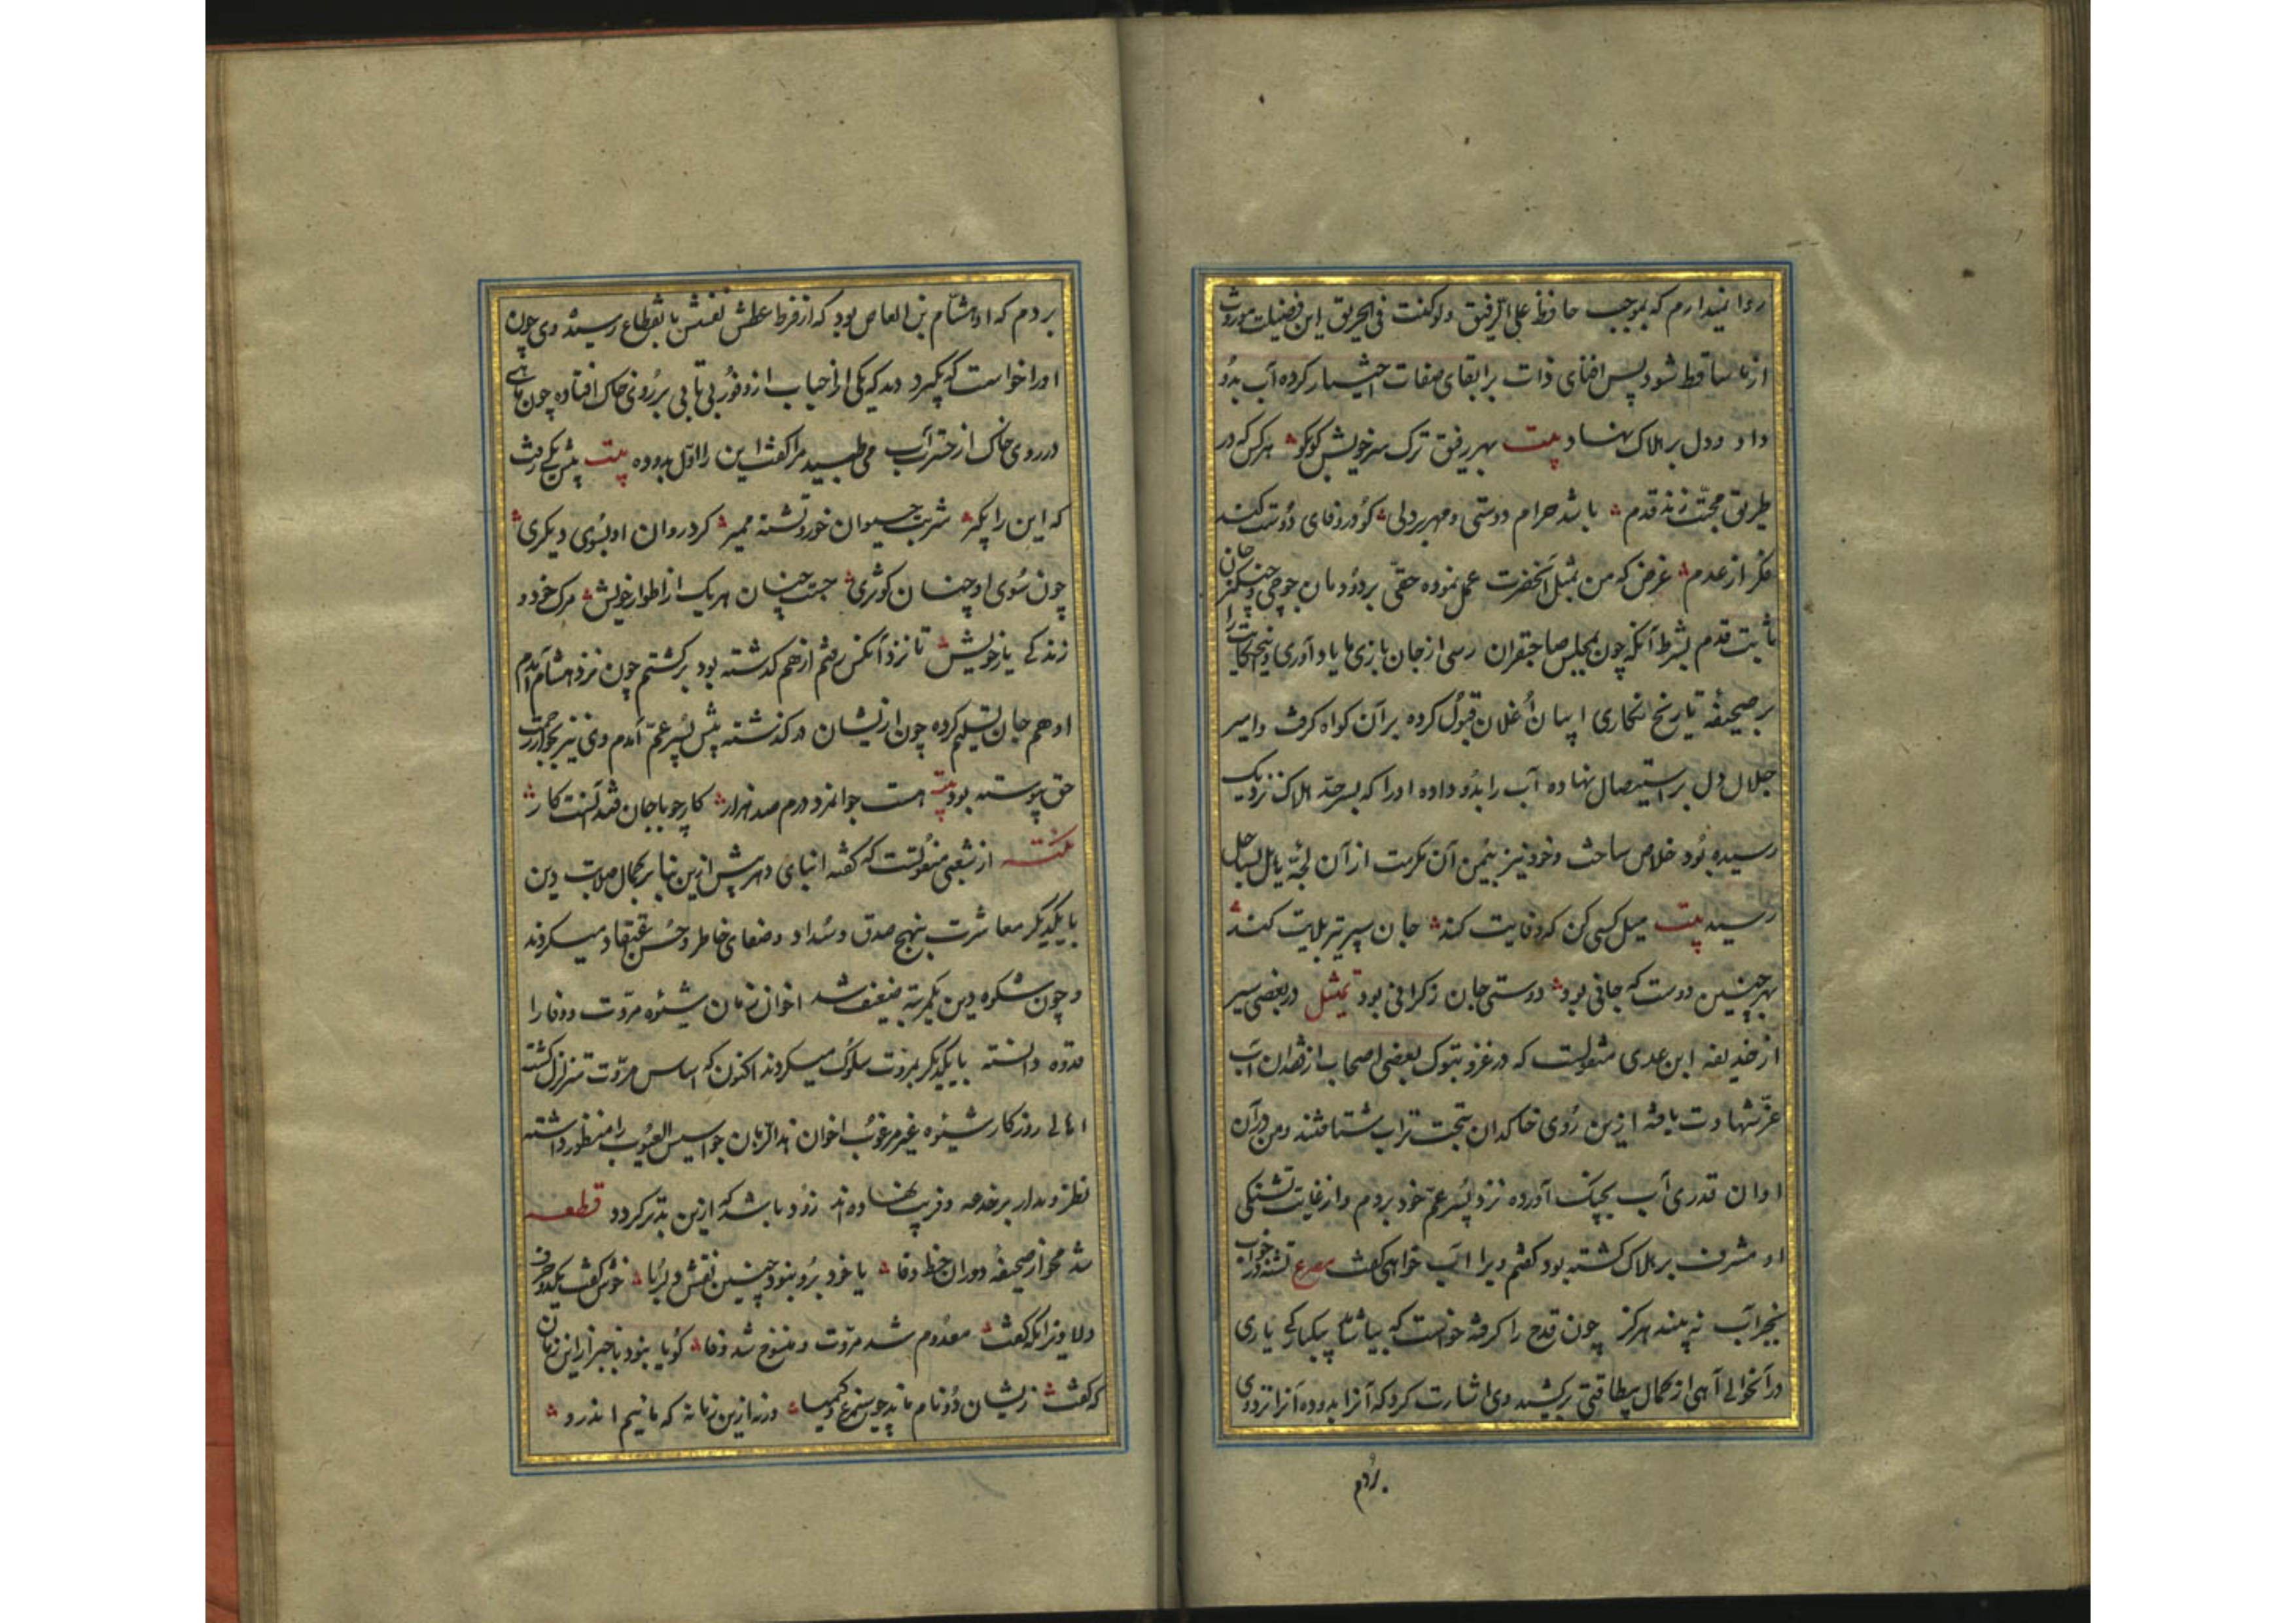 روا نمیدارم که بموجب حافظ علی الرفیق ولو کنت فی الحریق این فضیلت موروث
از ما ساقط شود پس افنای ذات بر ابقای صفات اختیار کرده آب بدو
داد و دل بر هلاک نهاد بیت بهر رفیق ترک سر خویش کو بکو هر کس که در
طریق محبت زند قدم باشد حرام دوستی و مهر بر دلی کو در وفای دوست کند
فکر از عدم غرض که من بمثل آنحضرت عمل نموده حقی بر دودمان جوجی و چنگیز خان
ثابت قدم بشرط آنکه چون بمجلس صاحبقران رسی از جان بازی ما یاد آوری و این حکایت را
بر صحیفه تاریخ نگاری ایسان اغلان قبول کرده بر آن گواه گرفت و امیر
جلال دل بر استیصال نهاده آب را بدو داده او را که بسرحد هلاک نزدیک
رسیده بود خلاص ساخت و خود نیز بیمن آن مکرمت از آن لجه هایل بساحل
رسید بیت میل کسی کن که وفایت کند جان سپر تیر بلایت کند
بهر چنین دوست که جانی بود دوستی جان ز گرانی بود تمثیل در بعضی سیر
از حذیفه ابن عدی منقولست که در غزو تبوک بعضی اصحاب از فقدان آب
عز شهادت یافته ازین روی خاکدان بتحت تراب شتافتند و من در آن
اوان قدری آب بچنگ آورده نزد پسر عم خود بردم و از غایت تشنگی
او مشرف بر هلاک گشته بود گفتم ویرا آب خواهی گفت مصرع تشنه در خواب
بجز آب نه بیند هرگز چون قدح را گرفته خواست که بیاشامد بیکبارگی یاری
در آنحوالی آهی از کمال بیطاقتی برکشید وی اشارت کرد که آنرا بدو ده آنرا نزد وی
بردم
بردم که او هشام بن العاص بود که از فرط عطش نفسش بانقطاع رسیده وی چون
او را خواست که بگیرد دید که یکی از احباب از وفور بی تابی بر روی خاک افتاده چون ماهی
در روی خاک از حسرت آب می طپید مرا گفت این را اول بدو ده بیت پیش یکی رفت
که این را بگیر شربت حیوان خور و تشنه ممیر کرد روان او بسوی دیگری
چون سوی او چنان کوثری جست چنان هریک از اطوار خویش مرگ خود و
زندگی یار خویش تا نزد آنکس رفتم از هم گذشته بود برگشتم چون نزد هشام آمدم
او هم جان تسلیم کرده چون از یشان در گذشته پیش پسر عم آمدم وی نیز بجوار رحمت
حق پیوسته بود بیت هست جوانمرد درم صد هزار کار چو با جان فتد آنست کار
نکته از شعبی منقولست که گفته ابنای دهر پیش ازین بنا بر کمال صلابت دین
با یکدیگر معاشرت بنهج صدق و سداد و صفای خاطر و حسن اعتقاد میکردند
و چون شکوه دین بمرتبه ضعیف شد اخوان زمان شیوه مروت و وفا را
قدوه دانسته با یکدیگر بمروت سلوک میکردند اکنون که اساس مروت متزلزل گشته
اهالی روزگار شیوه غیر مرغوب اخوان هذا الزمان جواسیس العیوب را منظور داشته
نظر و مدار بر خدعه و فریب نهاده اند زود باشد که ازین بتر گردد قطعه
شد محو از صحیفه دوران خط وفا یا خود برو نبود چنین نقش دلربا خوش گفت یکدو حرف
دلاویز آنکه گفت معدوم شد مروت و منسوخ شد وفا گویا نبود باخبر از این زمان
که گفت زیشان دو نام ماند چو سیمرغ و کیمیا ورنه ازین زمانه که مائیم اندرو